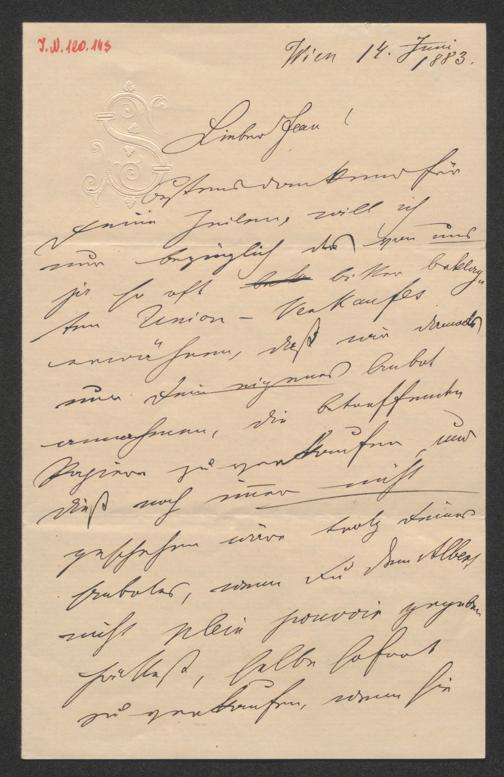 I.N. 120.145
Wien 14. Juni
1883.
Lieber Jean!
Bestens dankend für
Deine Zeilen, will ich
nur bezüglich des von uns
ja so oft bitter beklag-
ten Union-Verkaufes
erwähnen, daß wir damals
nur Dein eigenes Anbot
annahmen, die betreffenden
Papiere zu verkaufen, und
dieß noch immer nicht
geschehen wäre trotz Deines
Anbotes, wenn Du dem Albert
nicht plein pouvoir gegeben
hättest, selbe sofort
zu verkaufen, wenn sie